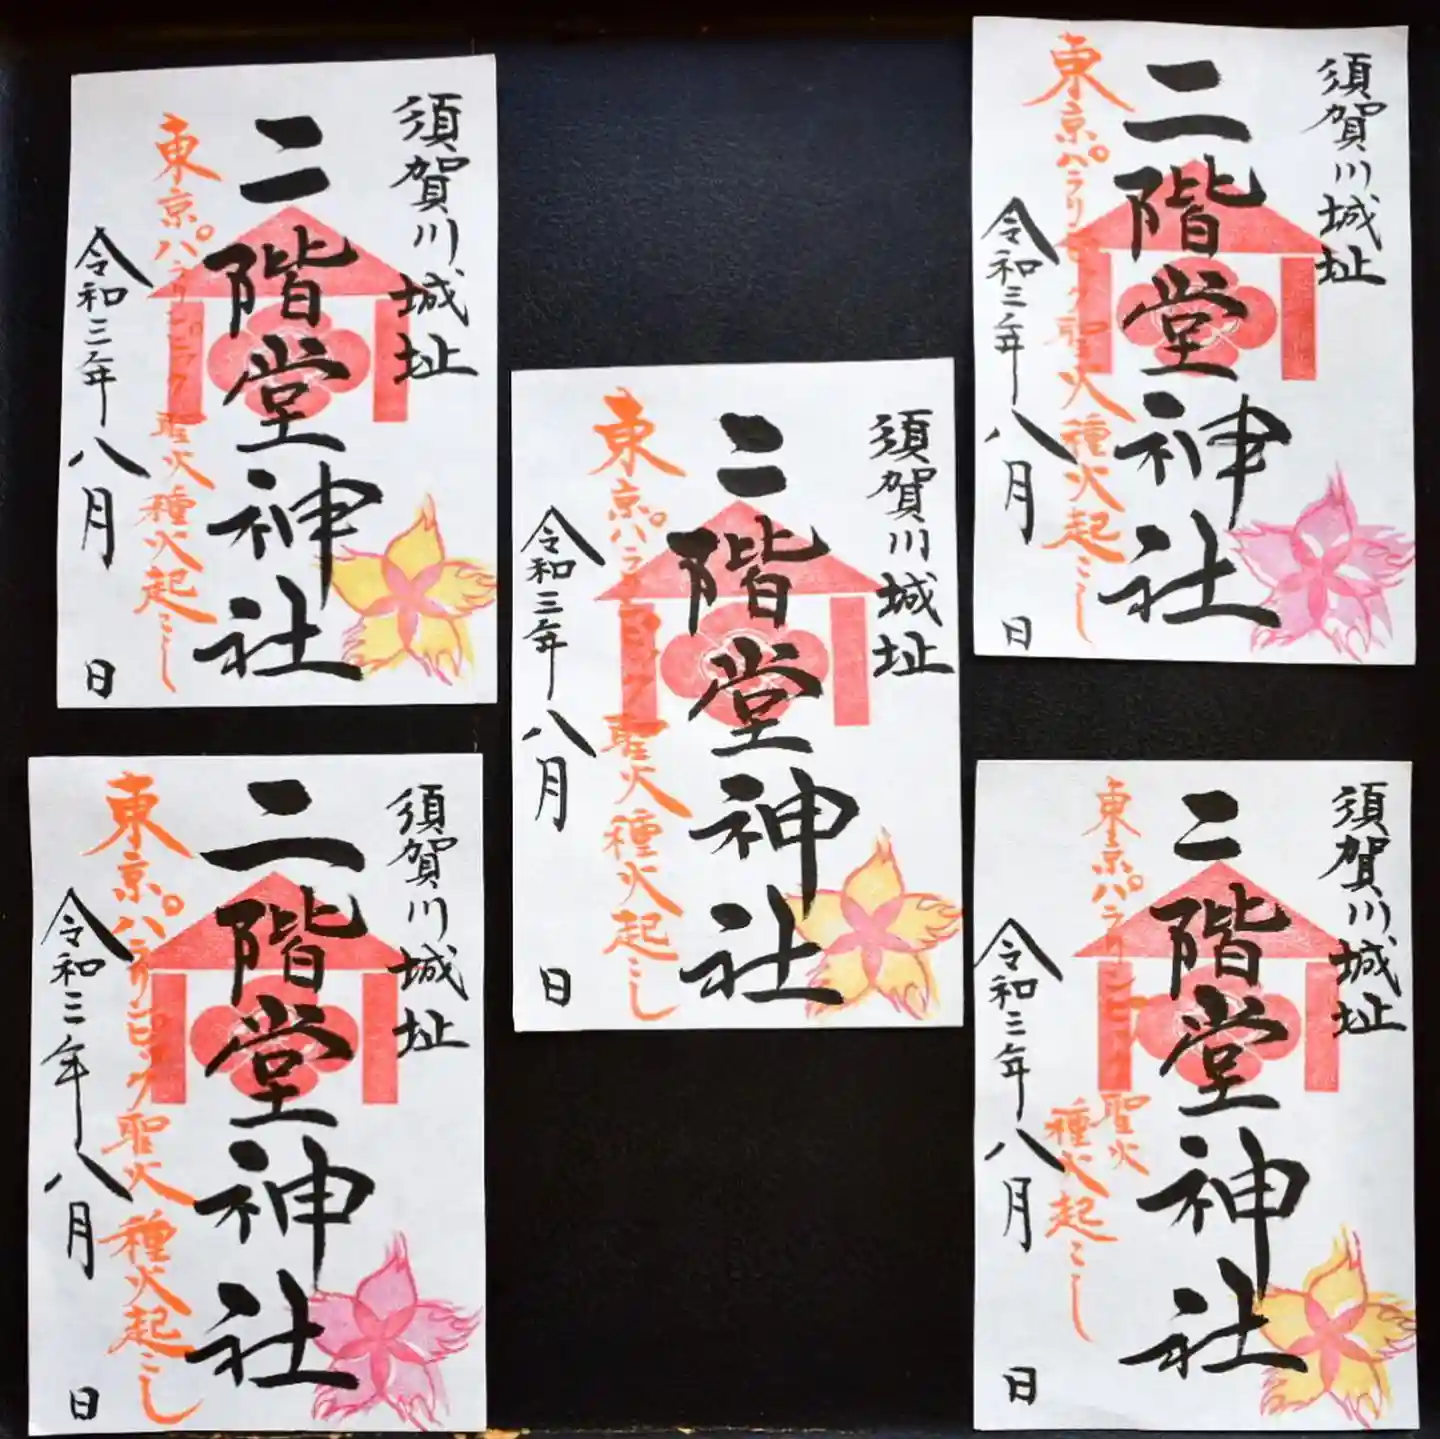 須賀川城址
二階堂神社
東京パラリンピック聖火種火起こし
令和三年八月 日
須賀川城址
二階堂神社
東京パラリンピック聖火種火起こし
令和三年八月 日
須賀川城址
二階堂神社
東京パラリンピック聖火種火起こし
令和三年八月 日
須賀川城址
二階堂神社
東京パラリンピック聖火種火起こし
令和三年八月 日
須賀川城址
二階堂神社
東京パラリンピック聖火
種火起こし
令和三年八月 日